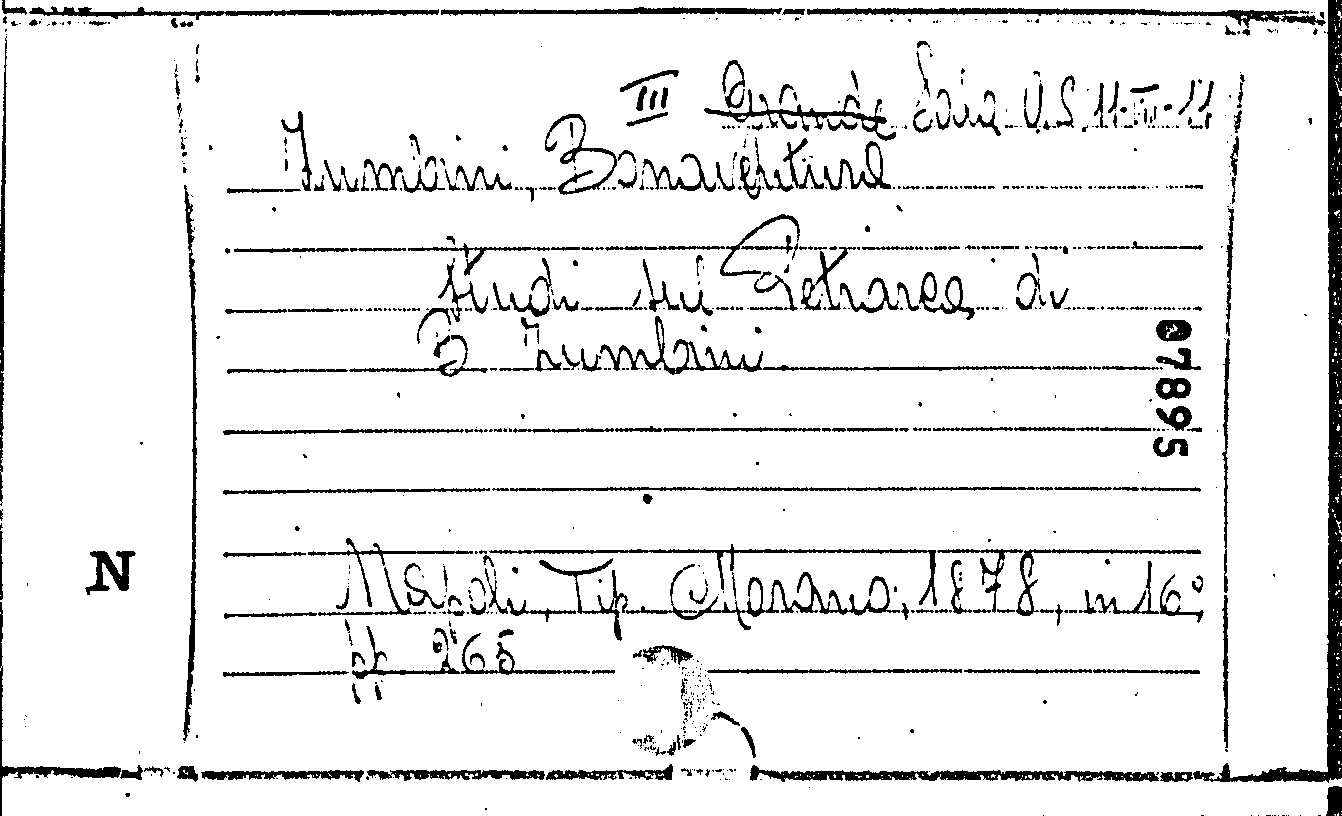 III Grande Sala V.S. 11-III-11
Zumbini, Bonaventura
Studi sul Petrarca, di
B. Zumbini.
07895
N
Napoli, Tip. Morano, 1878, in 16°,
pp. 265